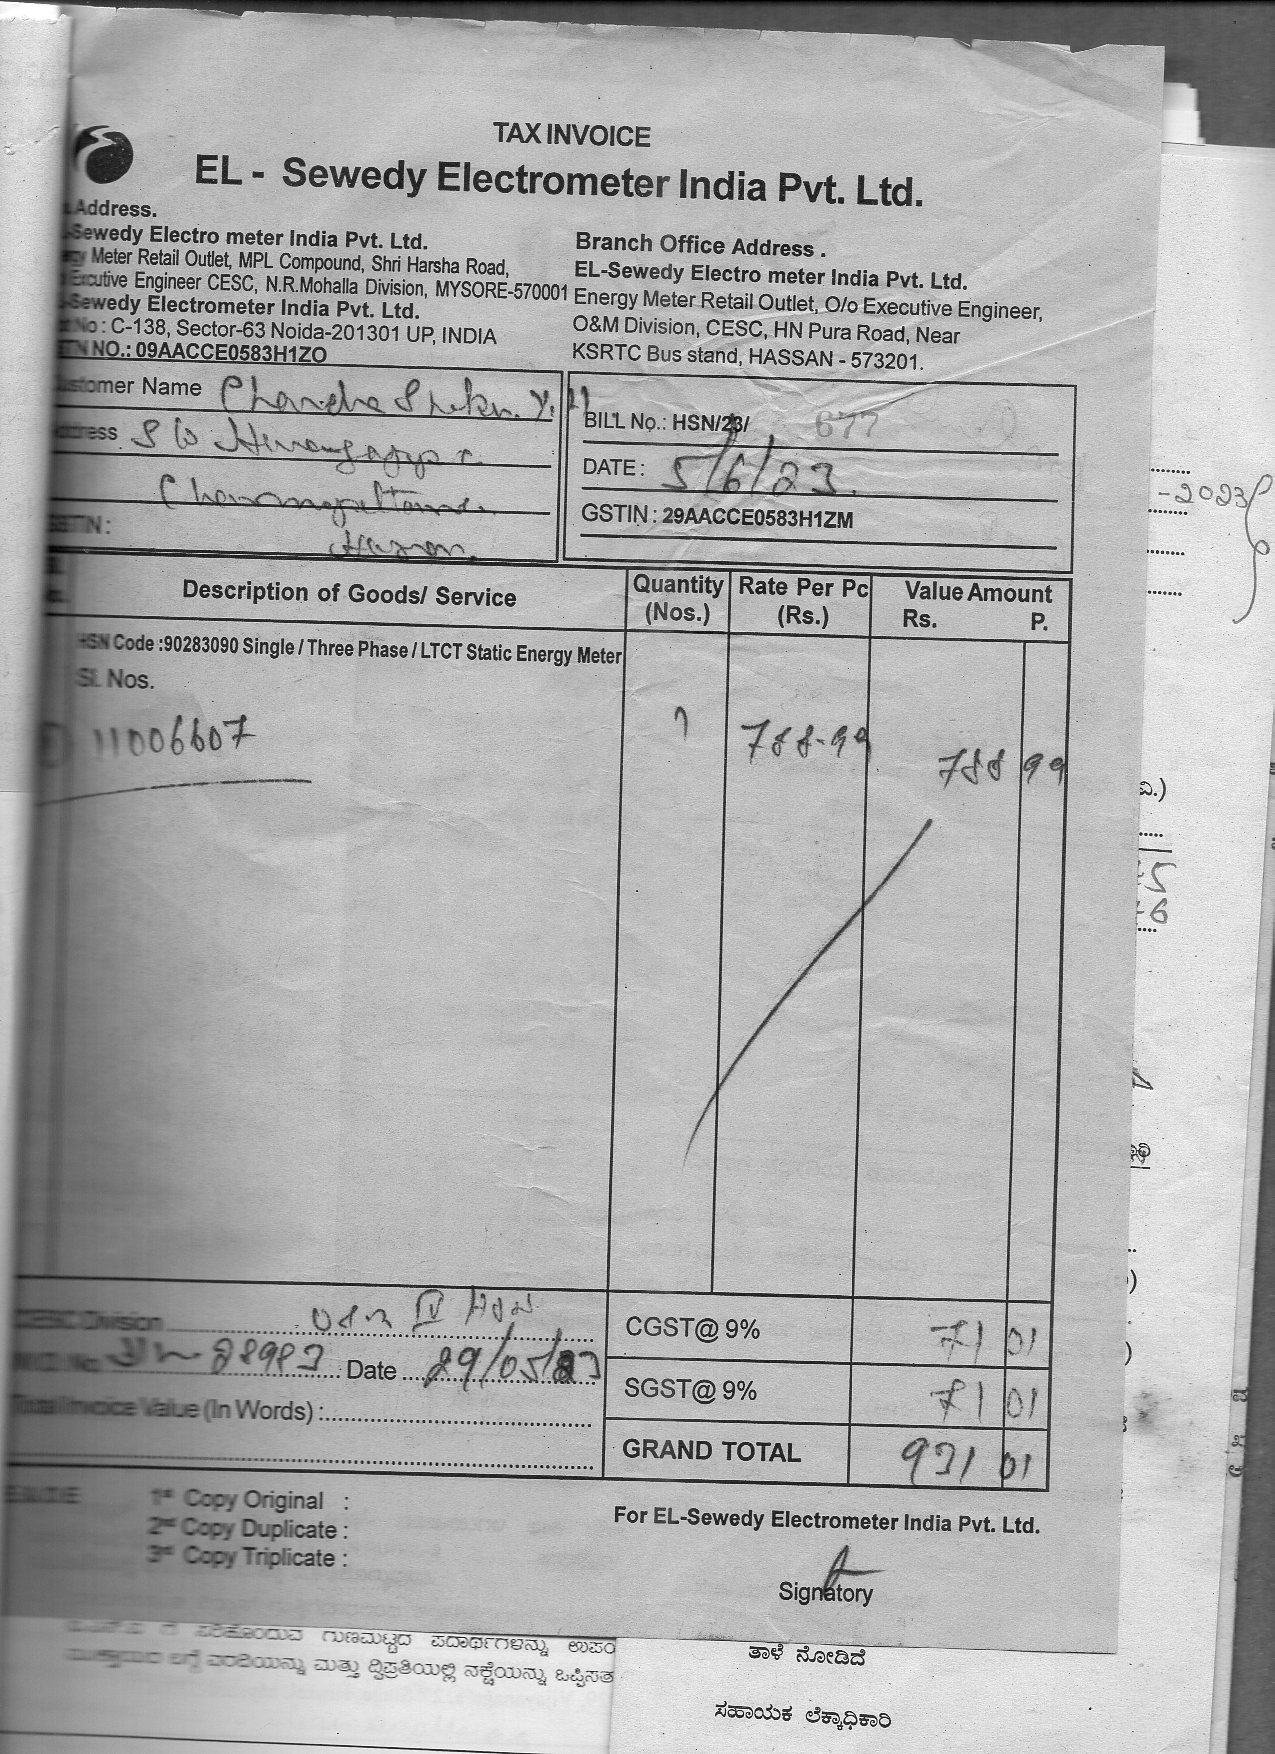 TAX INVOICE
EL - Sewedy Electrometer India Pvt. Ltd.
Address.
Sewedy Electro meter India Pvt. Ltd.
Meter Retail Outlet, MPL Compound, Shri Harsha Road,
Excutive Engineer CESC, N.R.Mohalla Division, MYSORE-570001
Sewedy Electrometer India Pvt. Ltd.
No : C-138, Sector-63 Noida-201301 UP, INDIA
NO.: 09AACCE0583H1ZO
Branch Office Address .
EL-Sewedy Electro meter India Pvt. Ltd.
Energy Meter Retail Outlet, O/o Executive Engineer,
O&M Division, CESC, HN Pura Road, Near
KSRTC Bus stand, HASSAN - 573201.
Customer Name Chandra Shekar. Y. H
Address S/o
Hassan.
GSTIN :
BILL No.: HSN/23/ 677
DATE : 5/6/23.
GSTIN : 29AACCE0583H1ZM
Description of Goods/ Service
Quantity (Nos.)
Rate Per Pc (Rs.)
Value Amount
Rs. P.
HSN Code :90283090 Single / Three Phase / LTCT Static Energy Meter
Sl. Nos.
11006607 1 788-99 788 99
CESC Division
No. 88983 Date 29/05/23
Total Invoice Value (In Words) :
CGST@ 9% 71 01
SGST@ 9% 71 01
GRAND TOTAL 931 01
1st Copy Original :
2nd Copy Duplicate :
3rd Copy Triplicate :
For EL-Sewedy Electrometer India Pvt. Ltd.
Signatory
-2023
ವಿ.)
ಗುಣಮಟ್ಟದ ಪದಾರ್ಥಗಳನ್ನು ಉಪಂ
ಮತ್ತು ದ್ವಿಪ್ರತಿಯಲ್ಲಿ ನಕ್ಷೆಯನ್ನು ಒಪ್ಪಿಸತ
ತಾಳೆ ನೋಡಿದೆ
ಸಹಾಯಕ ಲೆಕ್ಕಾಧಿಕಾರಿ